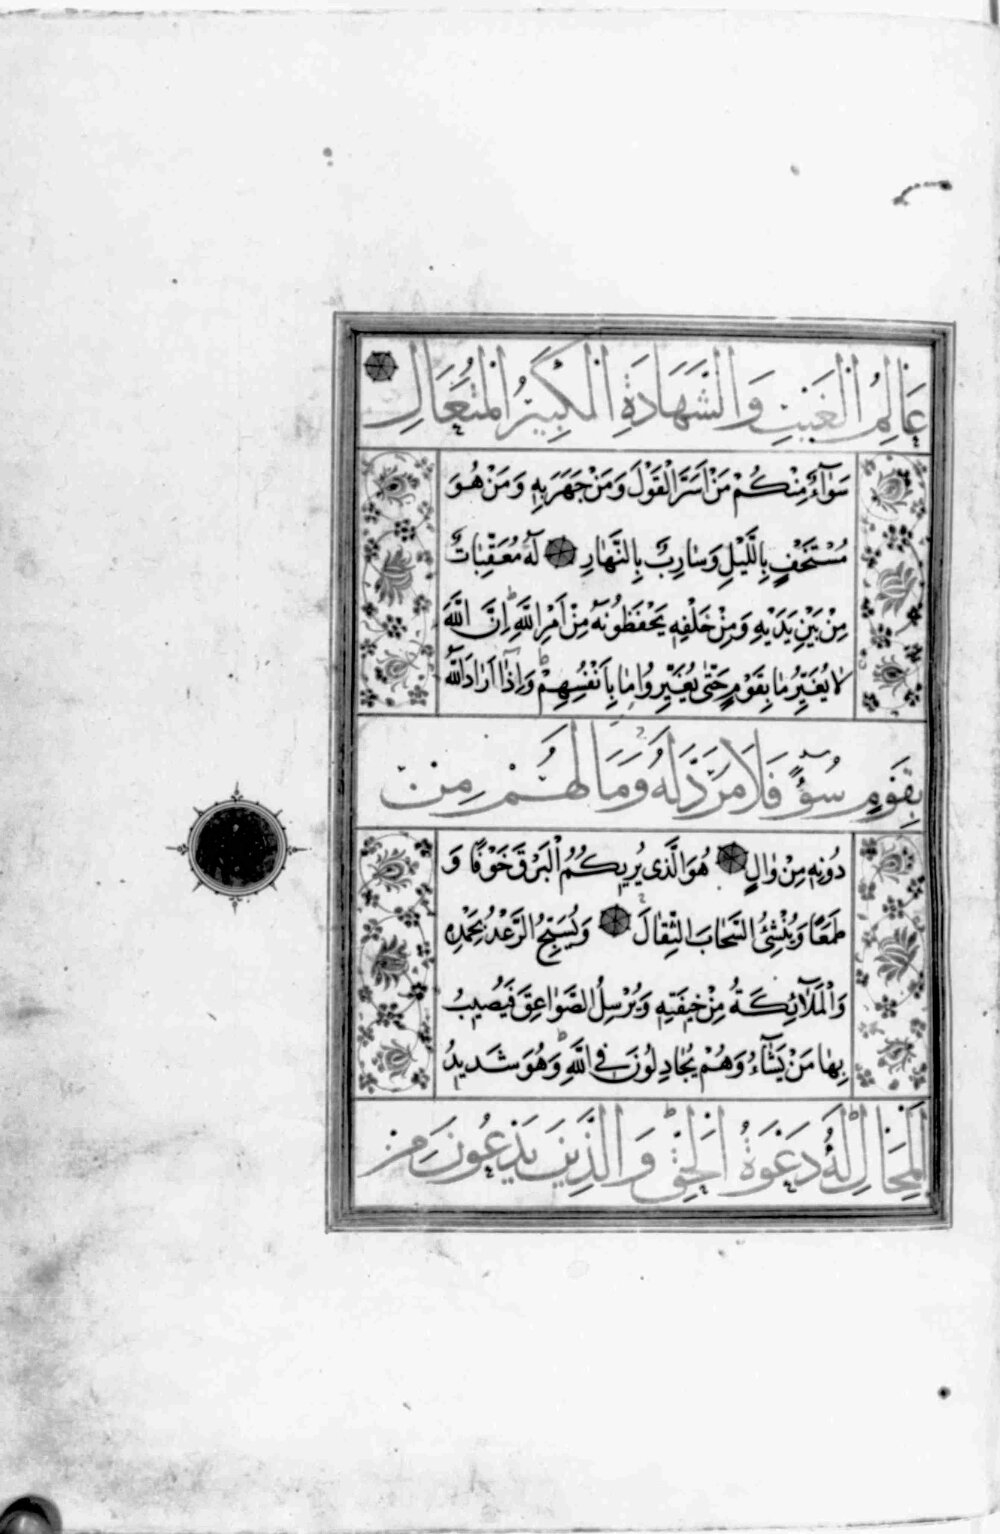 عَالِمُ الْغَيْبِ وَالشَّهَادَةِ الْكَبِيرُ الْمُتَعَالِ
سَوَآءٌ مِنْكُمْ مَنْ اَسَرَّ الْقَوْلَ وَمَنْ جَهَرَ بِهِ وَمَنْ هُوَ
مُسْتَخْفٍ بِالَّيْلِ وَسَارِبٌ بِالنَّهَارِ لَهُ مُعَقِّبَاتٌ
مِنْ بَيْنِ يَدَيْهِ وَمِنْ خَلْفِهِ يَحْفَظُونَهُ مِنْ اَمْرِ اللَّهِ اِنَّ اللَّهَ
لَا يُغَيِّرُ مَا بِقَوْمٍ حَتَّى يُغَيِّرُوا مَا بِاَنْفُسِهِمْ وَاِذَا اَرَادَ اللَّهُ
بِقَوْمٍ سُوءً فَلَا مَرَدَّ لَهُ وَمَا لَهُمْ مِنْ
دُونِهِ مِنْ وَالٍ هُوَ الَّذِى يُرِيكُمُ الْبَرْقَ خَوْفًا وَ
طَمَعًا وَيُنْشِئُ السَّحَابَ الثِّقَالَ وَيُسَبِّحُ الرَّعْدُ بِحَمْدِهِ
وَالْمَلَآئِكَةُ مِنْ خِيفَتِهِ وَيُرْسِلُ الصَّوَاعِقَ فَيُصِيبُ
بِهَا مَنْ يَشَآءُ وَهُمْ يُجَادِلُونَ فِى اللَّهِ وَهُوَ شَدِيدُ
الْمِحَالِ لَهُ دَعْوَةُ الْحَقِّ وَالَّذِينَ يَدْعُونَ مِنْ